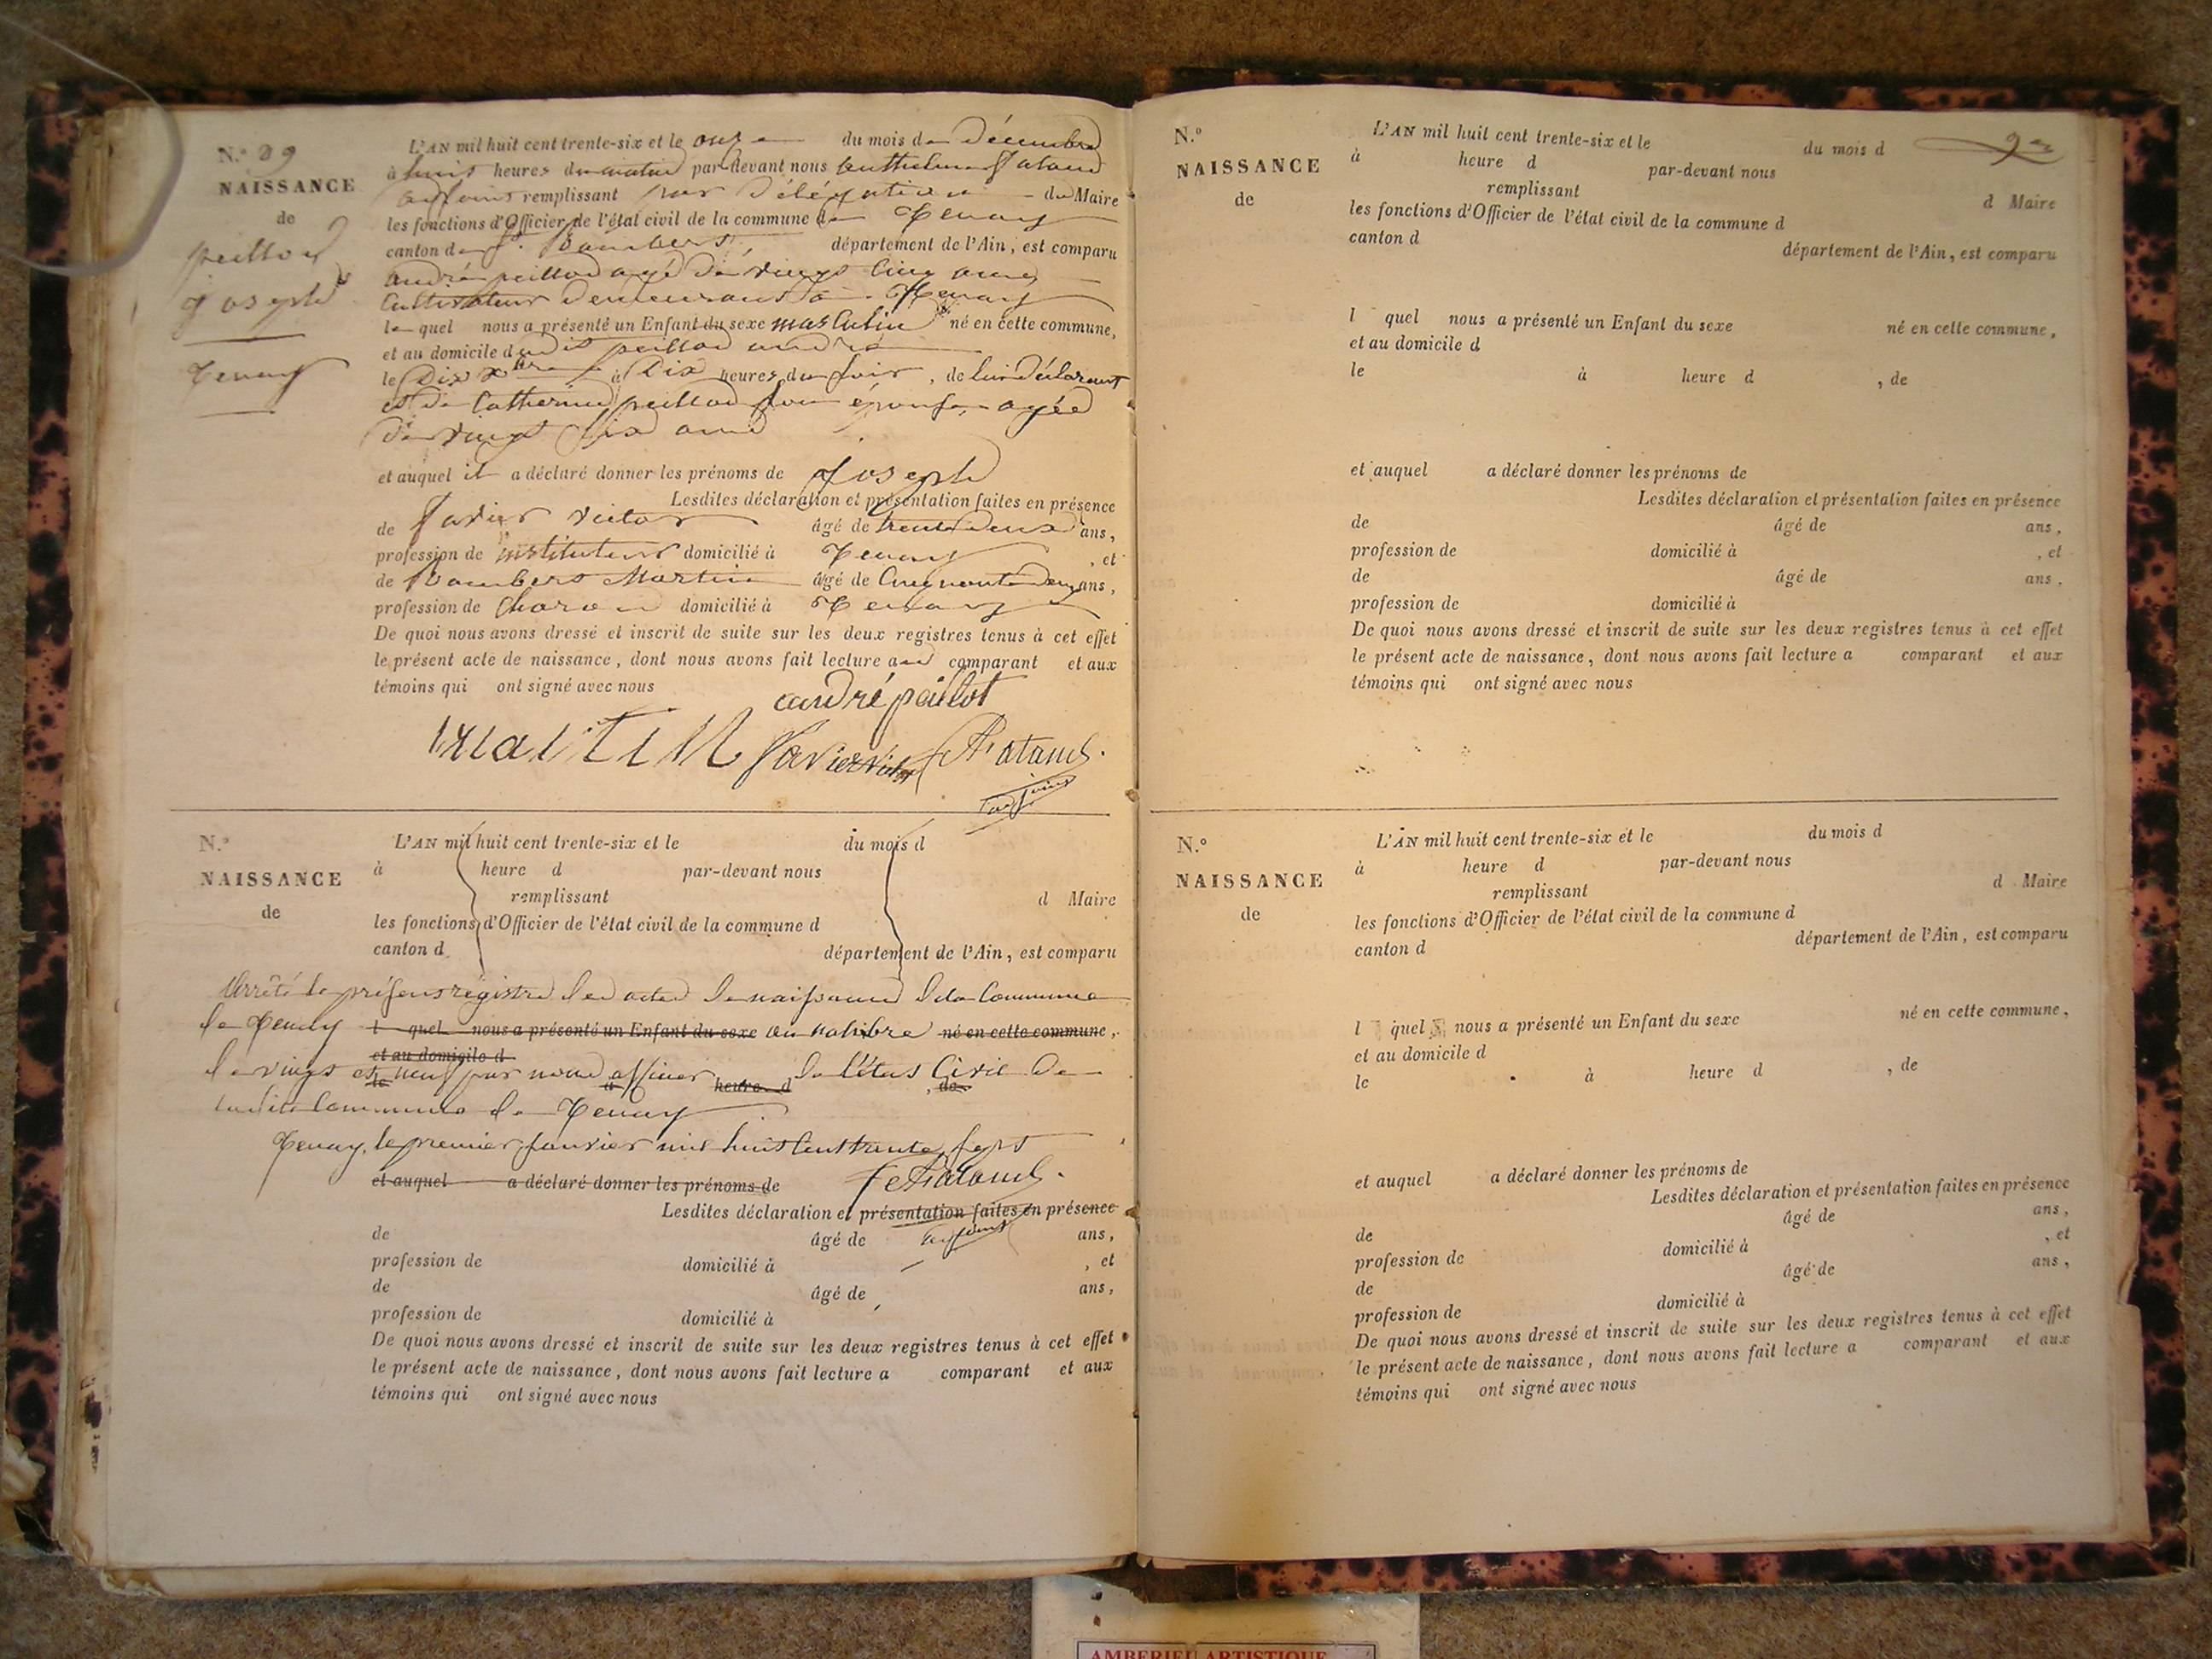 N.º 29
NAISSANCE
de
peillod
joseph
Tenay
L'AN mil huit cent trente-six et le onze du mois de Décembre
à huit heures du matin par-devant nous
adjoint remplissant par Délégation du Maire
les fonctions d'Officier de l'état civil de la commune de Tenay
canton de St. Rambert, département de l'Ain, est comparu
andré peillod agé de vingt cinq ans
Cultivateur demeurant à Tenay
le quel nous a présenté un Enfant du sexe masculin né en cette commune,
et au domicile dudit peillod andré
le Dix Xbre à Dix heures du soir, de lui Déclarant
et de Catherine peillod son épouse agée
de vingt six ans
et auquel il a déclaré donner les prénoms de joseph
Lesdites déclaration et présentation faites en présence
de Savier victor âgé de trente Deux ans,
profession de instituteur domicilié à Tenay, et
de Martin âgé de Cinquante Deux ans,
profession de Charon domicilié à Tenay
De quoi nous avons dressé et inscrit de suite sur les deux registres tenus à cet effet
le présent acte de naissance, dont nous avons fait lecture au comparant et aux
témoins qui ont signé avec nous
andré peillot
martin Savier victor
adjoint
N.º
NAISSANCE
de
L'AN mil huit cent trente-six et le du mois d
à heure d par-devant nous
remplissant d Maire
les fonctions d'Officier de l'état civil de la commune d
canton d département de l'Ain, est comparu
Arrêté le présent registre des actes de naissance de la Commune
de Tenay l quel nous a présenté un Enfant du sexe au nombre né en cette commune,
et au domicile d
de vingt et neuf par nous officier de l'état Civil de
le à heure d , de
ladite Commune de Tenay
Tenay, le premier janvier mil huit Cent trente sept
et auquel a déclaré donner les prénoms de
Lesdites déclaration et présentation faites en présence
adjoint
de âgé de ans,
profession de domicilié à , et
de âgé de ans,
profession de domicilié à
De quoi nous avons dressé et inscrit de suite sur les deux registres tenus à cet effet
le présent acte de naissance, dont nous avons fait lecture a comparant et aux
témoins qui ont signé avec nous
N.º
NAISSANCE
de
L'AN mil huit cent trente-six et le du mois d
à heure d par-devant nous
remplissant d Maire
les fonctions d'Officier de l'état civil de la commune d
canton d département de l'Ain, est comparu
l quel nous a présenté un Enfant du sexe né en cette commune,
et au domicile d
le à heure d , de
et auquel a déclaré donner les prénoms de
Lesdites déclaration et présentation faites en présence
de âgé de ans,
profession de domicilié à , et
de âgé de ans,
profession de domicilié à
De quoi nous avons dressé et inscrit de suite sur les deux registres tenus à cet effet
le présent acte de naissance, dont nous avons fait lecture a comparant et aux
témoins qui ont signé avec nous
N.º
NAISSANCE
de
L'AN mil huit cent trente-six et le du mois d
à heure d par-devant nous
remplissant d Maire
les fonctions d'Officier de l'état civil de la commune d
canton d département de l'Ain, est comparu
l quel nous a présenté un Enfant du sexe né en cette commune,
et au domicile d
le à heure d , de
et auquel a déclaré donner les prénoms de
Lesdites déclaration et présentation faites en présence
de âgé de ans,
profession de domicilié à , et
de âgé de ans,
profession de domicilié à
De quoi nous avons dressé et inscrit de suite sur les deux registres tenus à cet effet
le présent acte de naissance, dont nous avons fait lecture a comparant et aux
témoins qui ont signé avec nous
AMBERIEU ARTISTIQUE